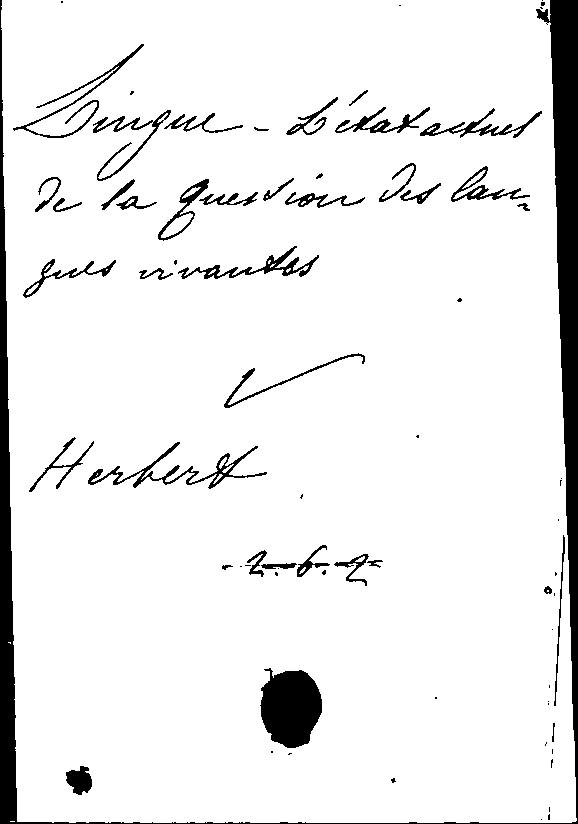 Lingue - L'état actuel
de la question des lan-
gues vivantes
Herbert
2.6.2